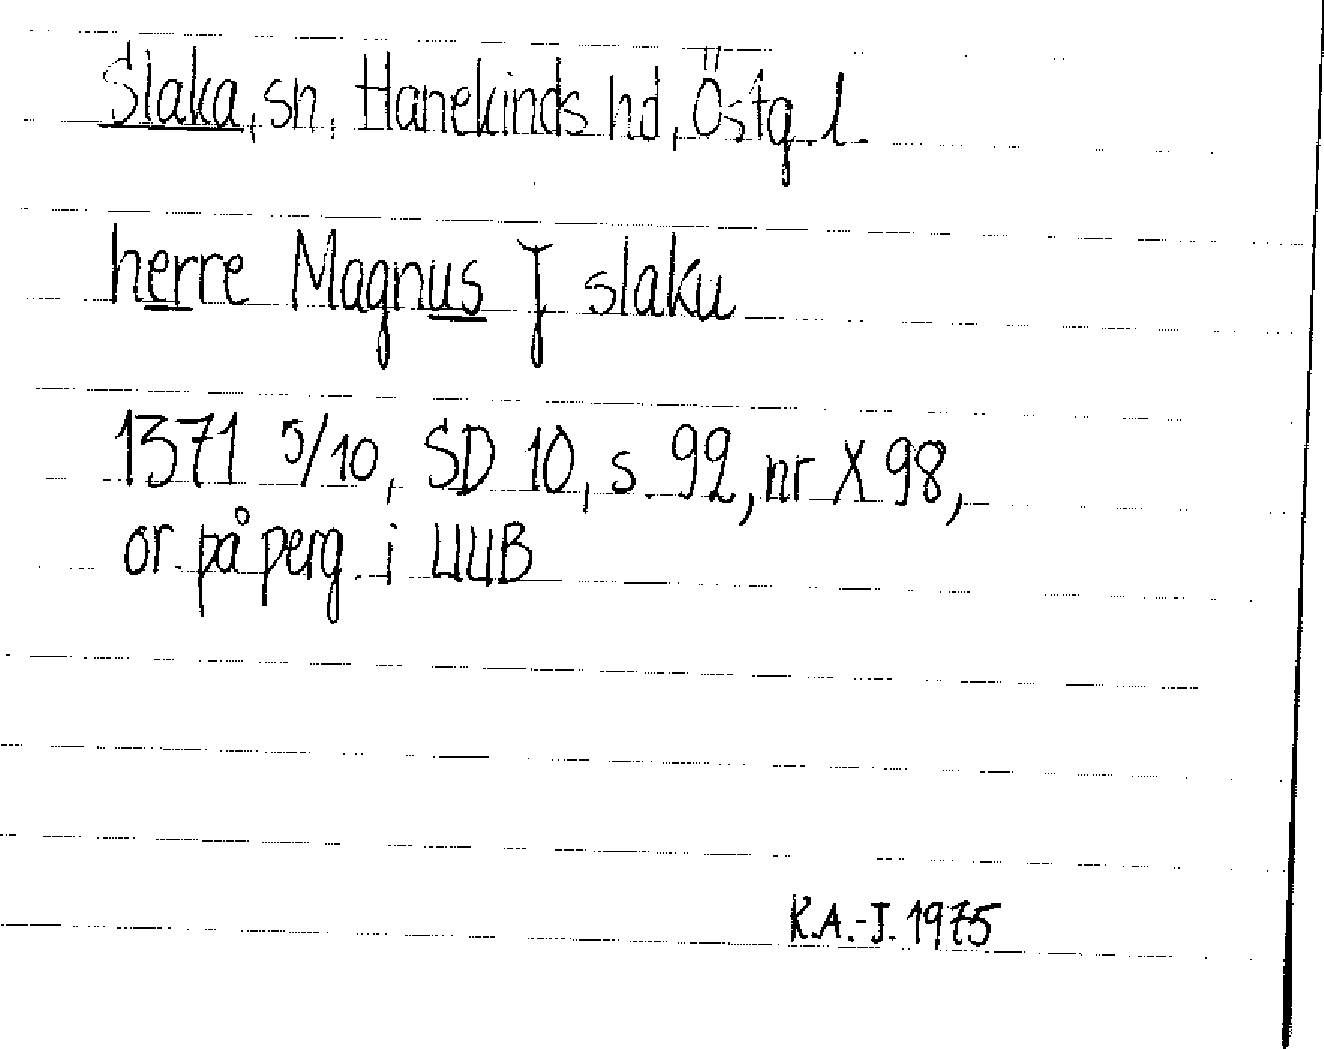 Slaka, sn, Hanekinds hd, Östg. l.
herre Magnus J slaku
1371 5/10, SD 10, s. 92, nr X 98,
or. på perg. i UUB
R.A.-J. 1975